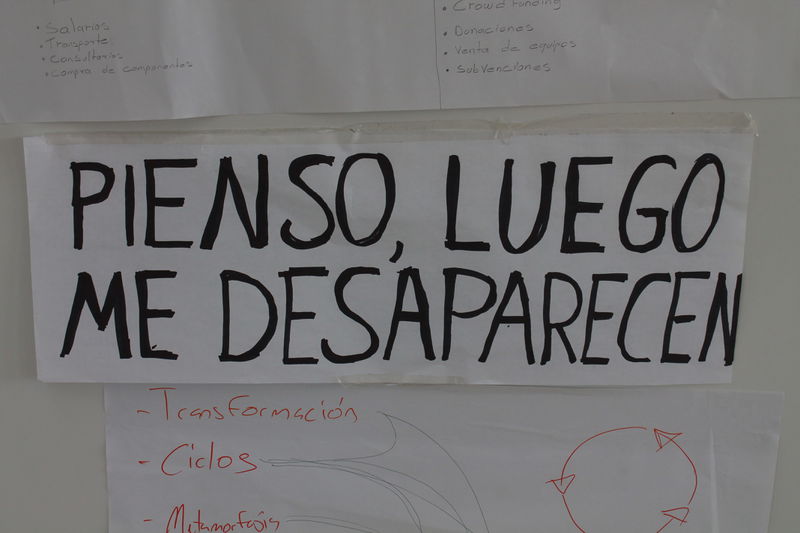 • Salarios
• Transporte
• Consultorios
• Compra de componentes
• Crowd Funding
• Donaciones
• Venta de equipos
• Subvenciones
PIENSO, LUEGO
ME DESAPARECEN
- Transformación
- Ciclos
- Metamorfosis